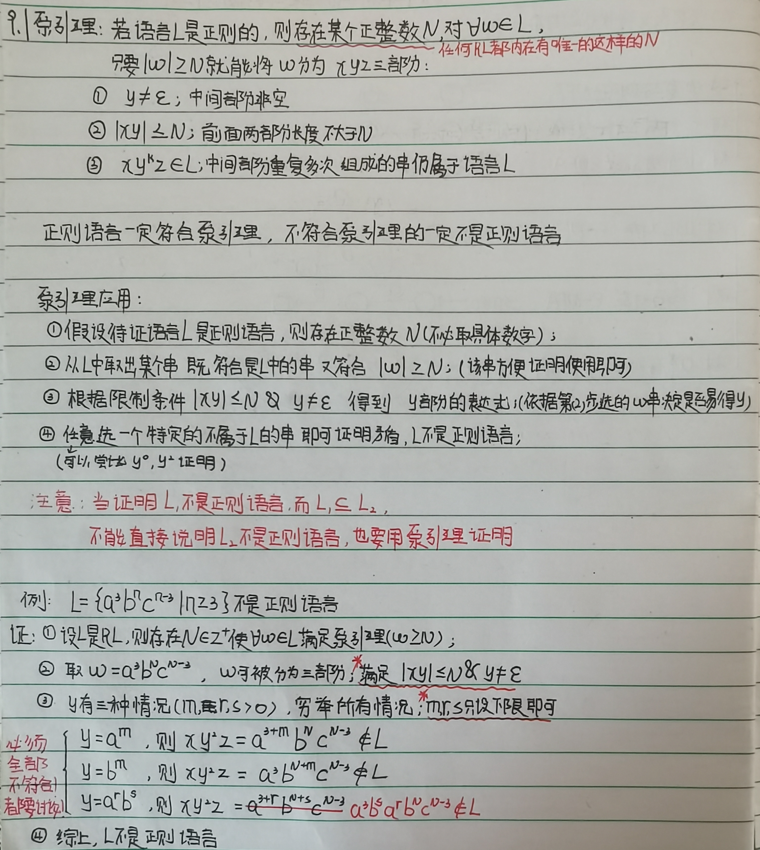 9. 泵引理: 若语言L是正则的, 则存在某个正整数N, 对∀w∈L,
任何RL都内在有唯一的这样的N
只要|w|≥N就能将w分为xyz三部分:
① y≠ε; 中间部分非空
② |xy|≤N; 前面两部分长度不大于N
③ xyᵏz∈L; 中间部分重复多次组成的串仍属于语言L
正则语言一定符合泵引理, 不符合泵引理的一定不是正则语言
泵引理应用:
①假设待证语言L是正则语言, 则存在正整数N(不必取具体数字);
②从L中取出某个串 既符合是L中的串又符合 |w|≥N; (该串方便证明使用即可)
③ 根据限制条件 |xy|≤N & y≠ε 得到 y部分的表达式; (依据第(2)步选的w串决定是否易得y)
④ 任意选一个特定的不属于L的串 即可证明矛盾, L不是正则语言;
(可以尝试 y⁰, y² 证明)
注意: 当证明L₁不是正则语言, 而L₁⊆L₂,
不能直接说明L₂不是正则语言, 也要用泵引理证明
例: L={a³bⁿcⁿ⁻³|n≥3}不是正则语言
证: ① 设L是RL, 则存在N∈Z⁺使∀w∈L满足泵引理(w≥N);
② 取w=a³bᴺcᴺ⁻³, w可被分为三部分; *满足 |xy|≤N & y≠ε
③ y有三种情况(m,r,s>0), 穷举所有情况; *m,r,s只设下限即可
y=aᵐ, 则 xy²z=a³⁺ᵐbᴺcᴺ⁻³∉L
y=bᵐ, 则 xy²z=a³bᴺ⁺ᵐcᴺ⁻³∉L
y=aʳbˢ, 则 xy²z=a³⁺ʳbᴺ⁺ˢcᴺ⁻³ a³bˢaʳbᴺcᴺ⁻³∉L
必须
全部
不符合!
都要讨论
④ 综上, L不是正则语言